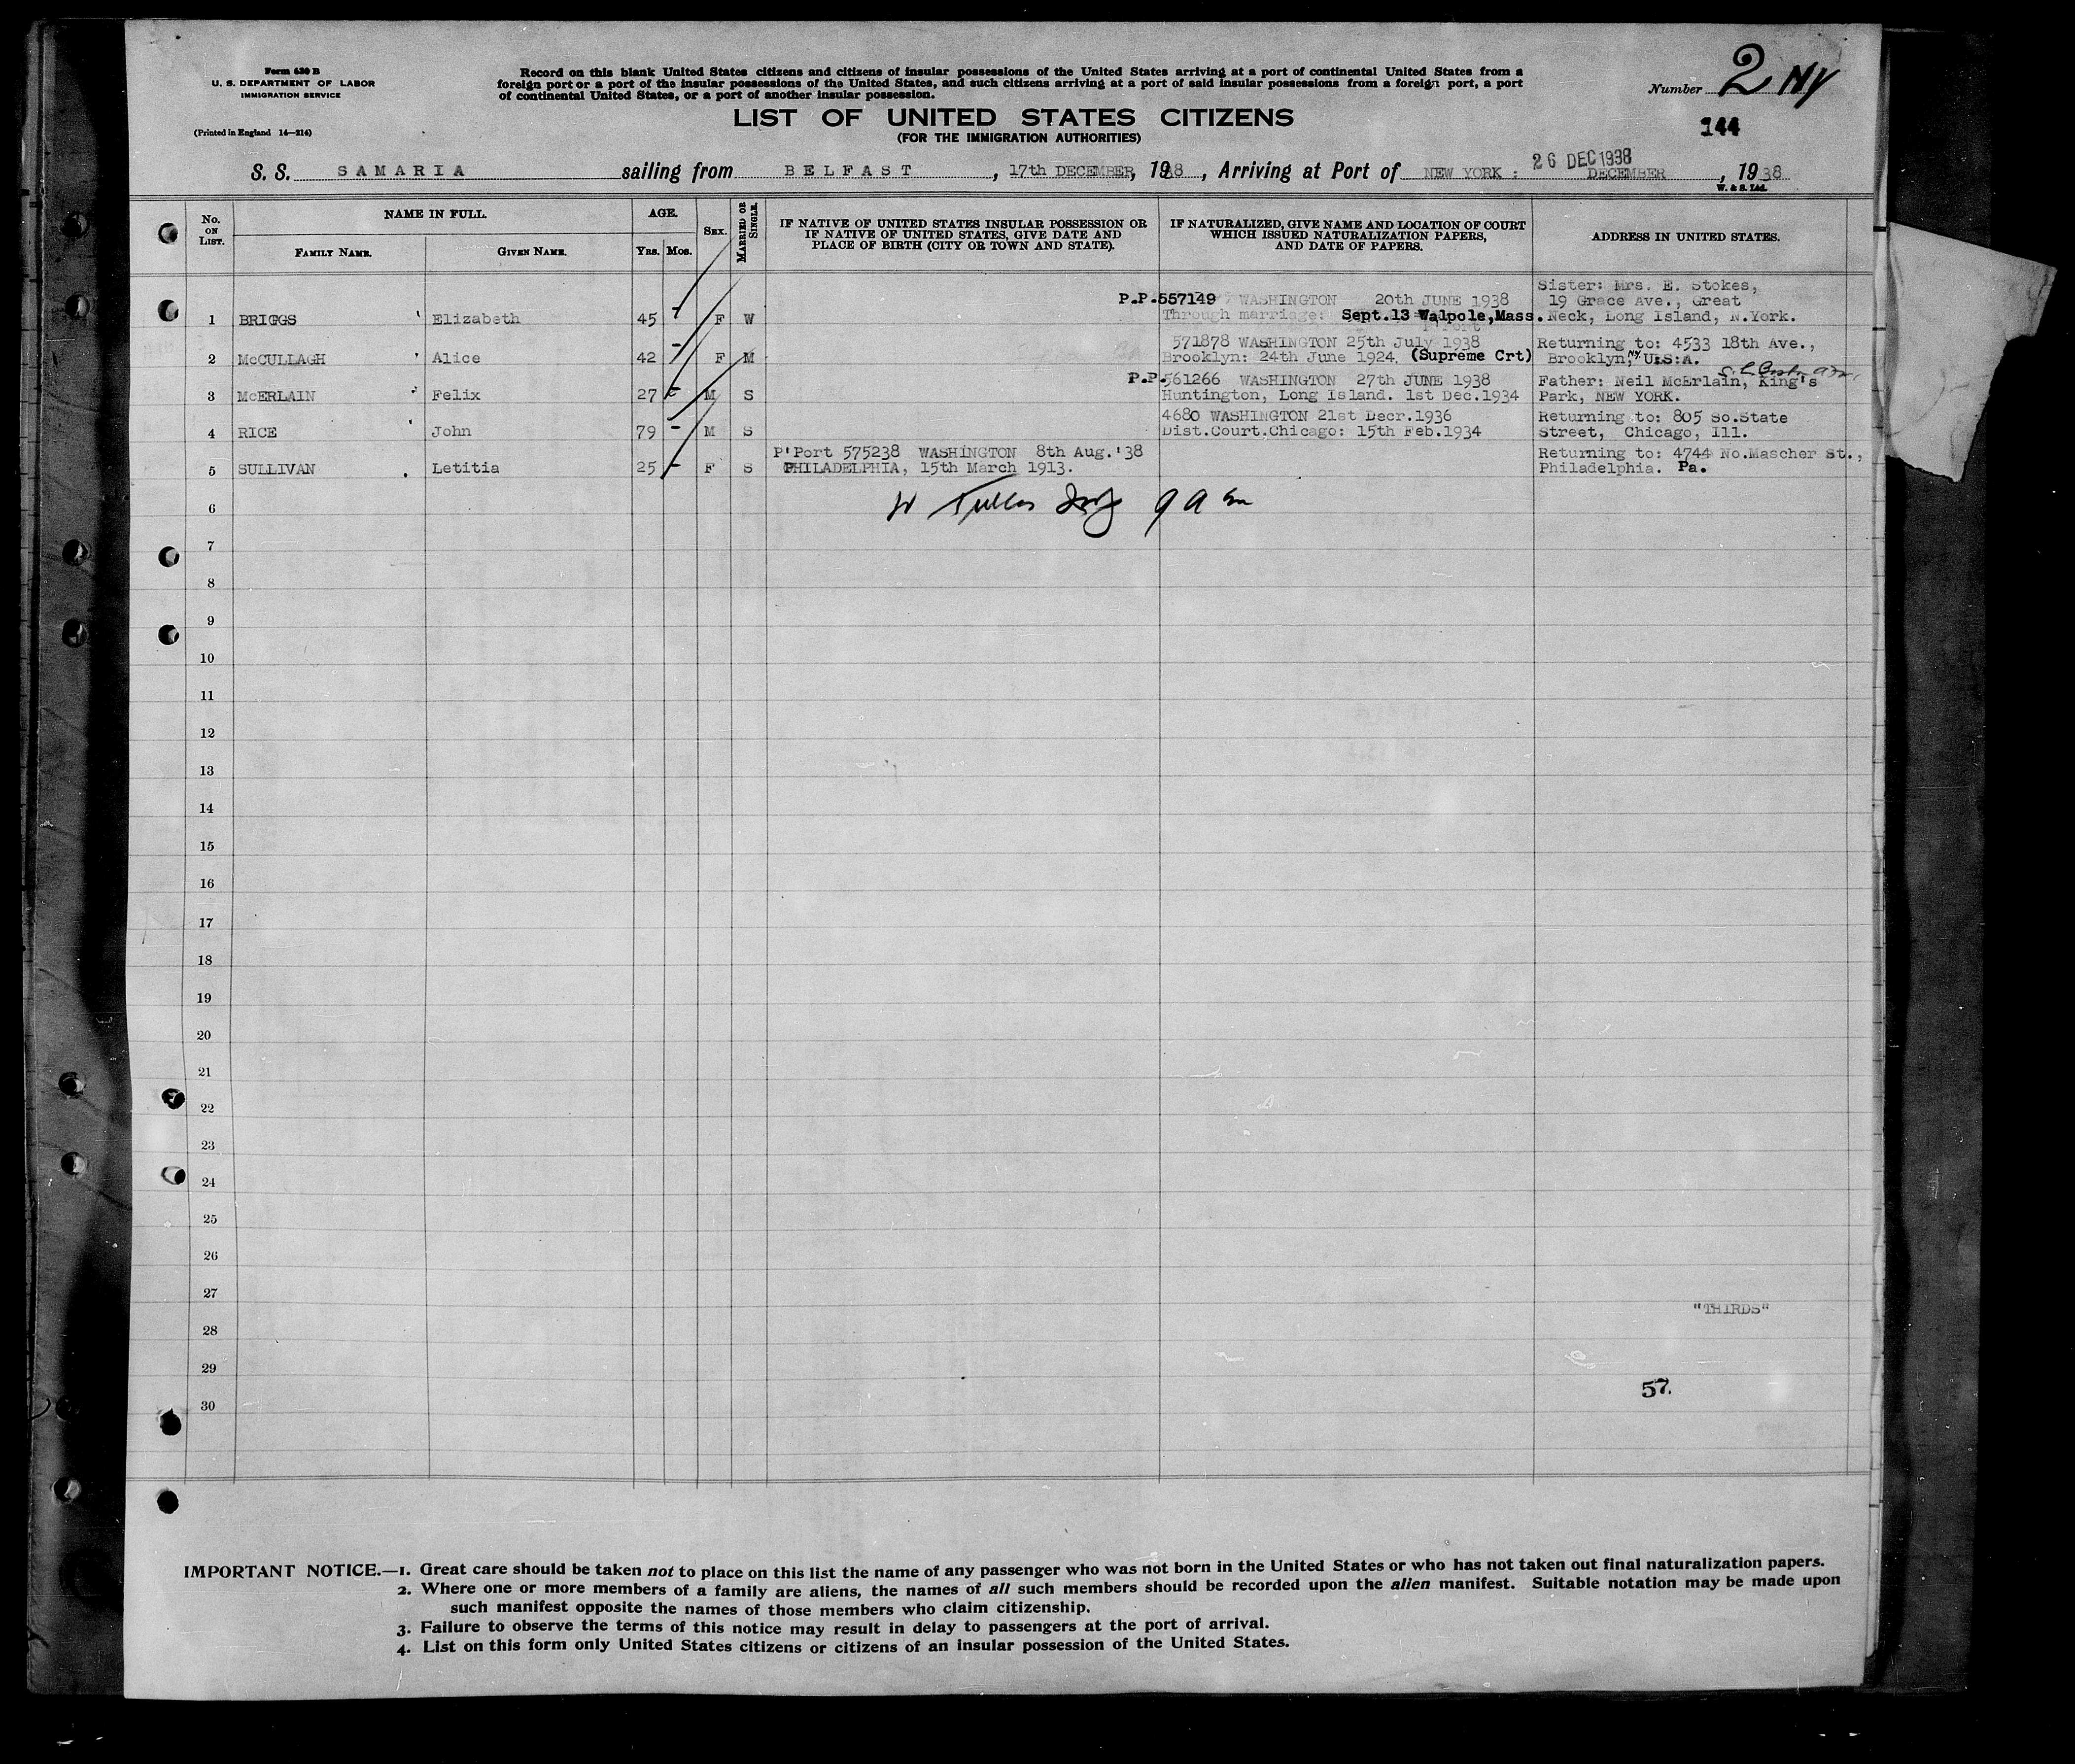 Form 630 B
U. S. DEPARTMENT OF LABOR
IMMIGRATION SERVICE
(Printed in England 14—214)
Record on this blank United States citizens and citizens of insular possessions of the United States arriving at a port of continental United States from a
foreign port or a port of the insular possessions of the United States, and such citizens arriving at a port of said insular possessions from a foreign port, a port
of continental United States, or a port of another insular possession.
Number 2 NY
144
LIST OF UNITED STATES CITIZENS
(FOR THE IMMIGRATION AUTHORITIES)
S. S. SAMARIA sailing from BELFAST, 17th DECEMBER, 1938, Arriving at Port of NEW YORK: 26 DEC 1938 DECEMBER, 1938
W. & S. Ltd.
No. ON LIST.
NAME IN FULL.
FAMILY NAME.
GIVEN NAME.
AGE.
YRS. MOS.
SEX.
MARRIED OR SINGLE.
IF NATIVE OF UNITED STATES INSULAR POSSESSION OR
IF NATIVE OF UNITED STATES, GIVE DATE AND
PLACE OF BIRTH (CITY OR TOWN AND STATE).
IF NATURALIZED, GIVE NAME AND LOCATION OF COURT
WHICH ISSUED NATURALIZATION PAPERS,
AND DATE OF PAPERS.
ADDRESS IN UNITED STATES.
Sister: Mrs. E. Stokes,
P.P.557149 WASHINGTON 20th JUNE 1938 19 Grace Ave., Great
1 BRIGGS Elizabeth 45 - F W Through marriage: Sept.13 Walpole,Mass. Neck, Long Island, N.York.
P'Port
571878 WASHINGTON 25th July 1938 Returning to: 4533 18th Ave.,
2 McCULLAGH Alice 42 - F M Brooklyn: 24th June 1924. (Supreme Crt) Brooklyn, NY. U.S.A.
P.P.561266 WASHINGTON 27th JUNE 1938 Father: Neil McErlain, King's
3 McERLAIN Felix 27 - M S Huntington, Long Island. 1st Dec.1934 Park, NEW YORK.
4680 WASHINGTON 21st Decr.1936 Returning to: 805 So.State
4 RICE John 79 - M S Dist.Court.Chicago: 15th Feb.1934 Street, Chicago, Ill.
P'Port 575238 WASHINGTON 8th Aug.'38 Returning to: 4744 No.Mascher St.,
5 SULLIVAN Letitia 25 - F S PHILADELPHIA, 15th March 1913. Philadelphia. Pa.
6
7
8
9
10
11
12
13
14
15
16
17
18
19
20
21
22
23
24
25
26
27
"THIRDS"
28
29
57.
30
IMPORTANT NOTICE.—1. Great care should be taken not to place on this list the name of any passenger who was not born in the United States or who has not taken out final naturalization papers.
2. Where one or more members of a family are aliens, the names of all such members should be recorded upon the alien manifest. Suitable notation may be made upon
such manifest opposite the names of those members who claim citizenship.
3. Failure to observe the terms of this notice may result in delay to passengers at the port of arrival.
4. List on this form only United States citizens or citizens of an insular possession of the United States.